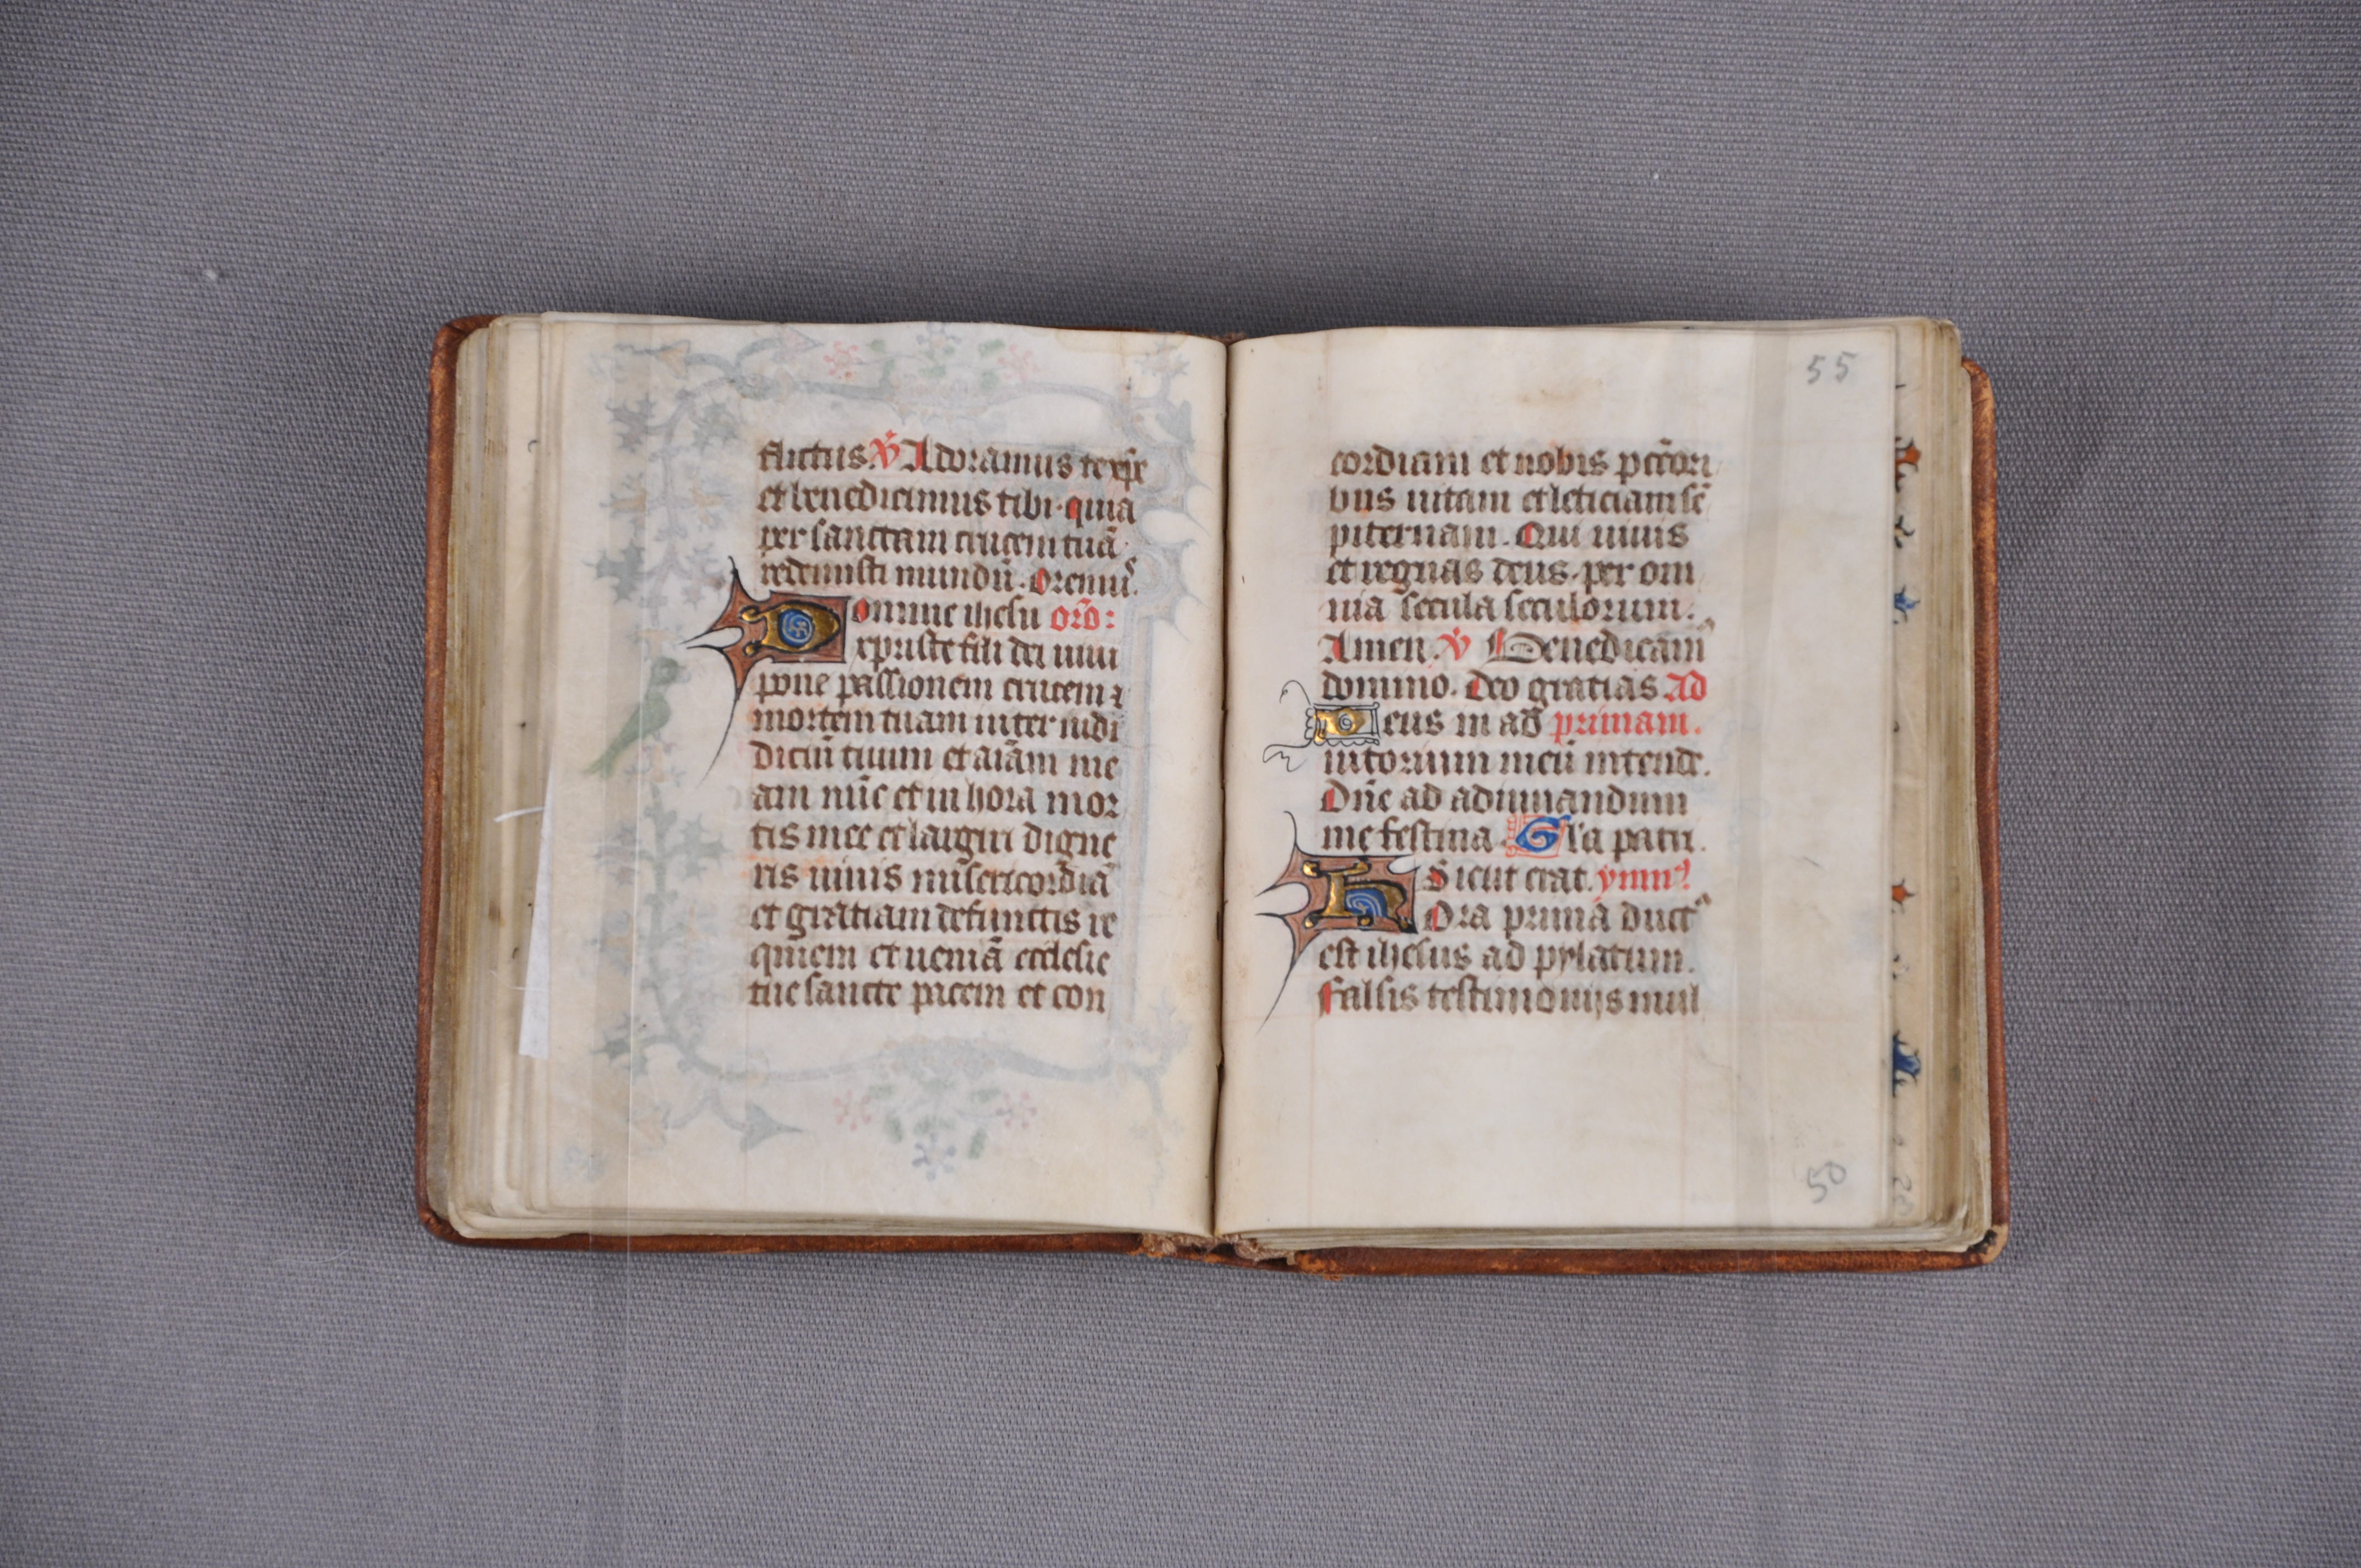 flictus. V̄ Adoramus te xp̄e
et benedicimus tibi · quia
per sanctam crucem tuā
redemisti mundū. Oremus̄.
Domine ihesu oro̅:
xpriste fili dei uiui
pone passionem crucem ⁊
mortem tuam inter iudi
diciū tuum et aīam me
am nūc et in hora mor
tis mee et largiri digne
ris uiuis misericordiā
et gratiam defunctis re
quiem et ueniā ecclesie
tue sancte pacem et con
55
cordiam et nobis pcc̄ori
bus uitam et leticiam sē
piternam. Qui uiuis
et regnas deus · per om
nia secula seculorum.
Amen. V̄ Benedicam̄
domino. Deo gratias Ad
Deus in ad primam.
iutorium meū intende.
Dn̄e ad adiuuandum
me festina. Gl̄a patri.
Sicut erat. ymnꝰ
HOra prima ductꝰ
est ihesus ad pylatum.
Falsis testimoniis mul
50